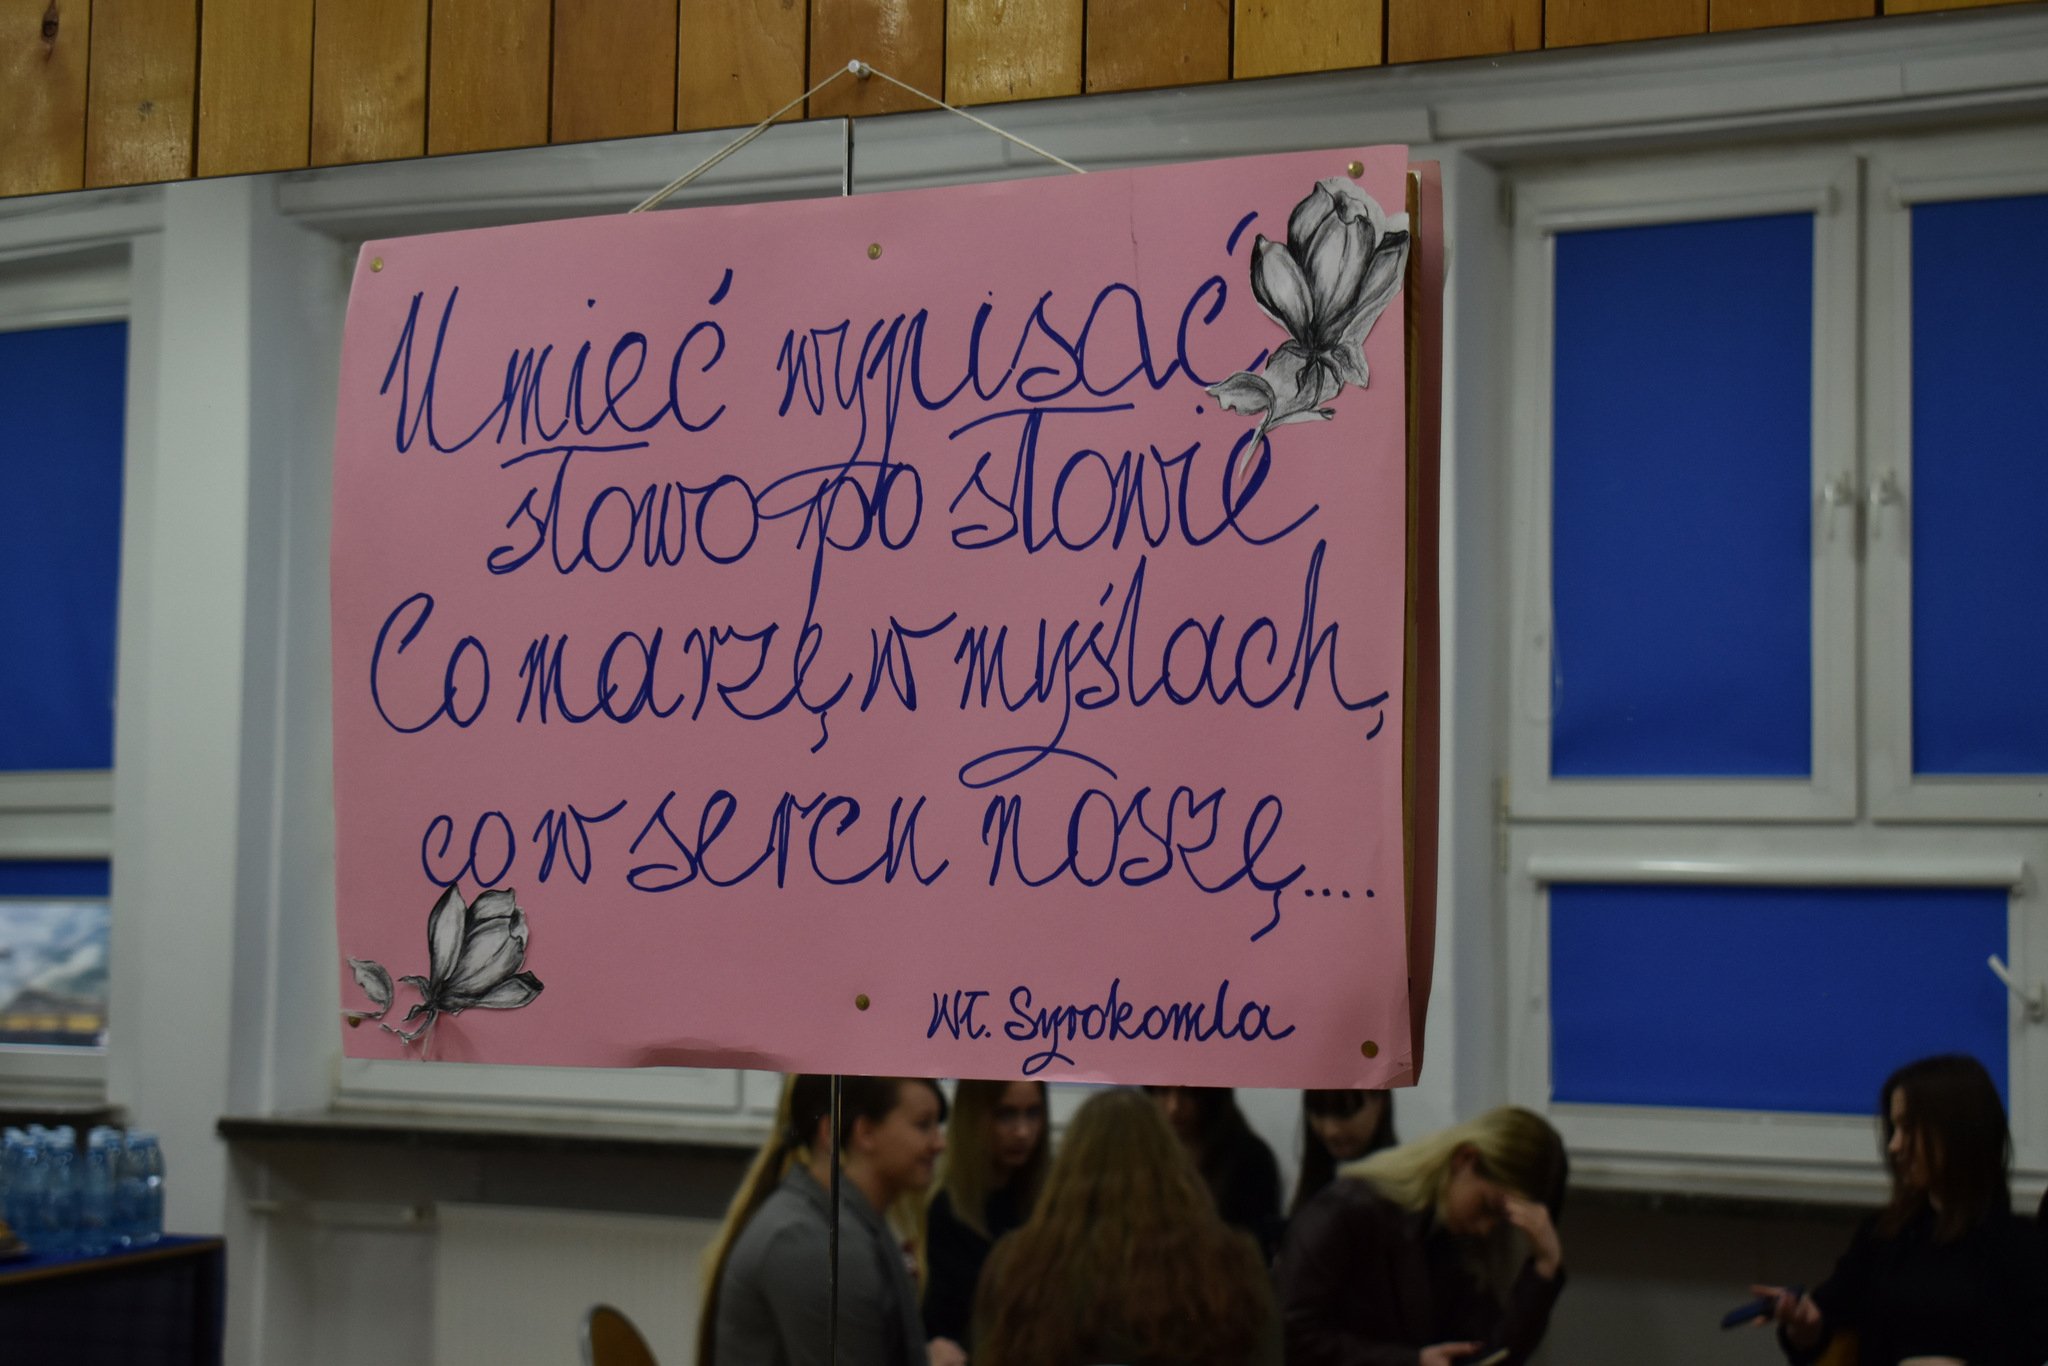 Umieć wypisać
słowo po słowie
Co marzę w myślach,
co w sercu noszę....
Wł. Syrokomla